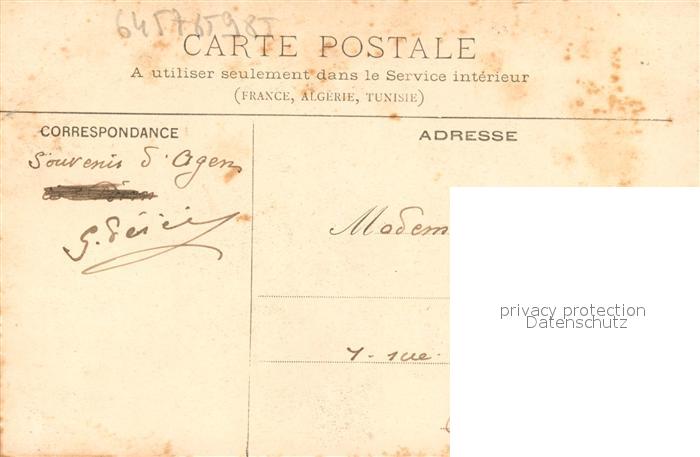 645765985
CARTE POSTALE
A utiliser seulement dans le Service intérieur
(FRANCE, ALGÉRIE, TUNISIE)
CORRESPONDANCE
ADRESSE
Souvenir d'Agen
Madem
7 - rue
privacy protection
Datenschutz